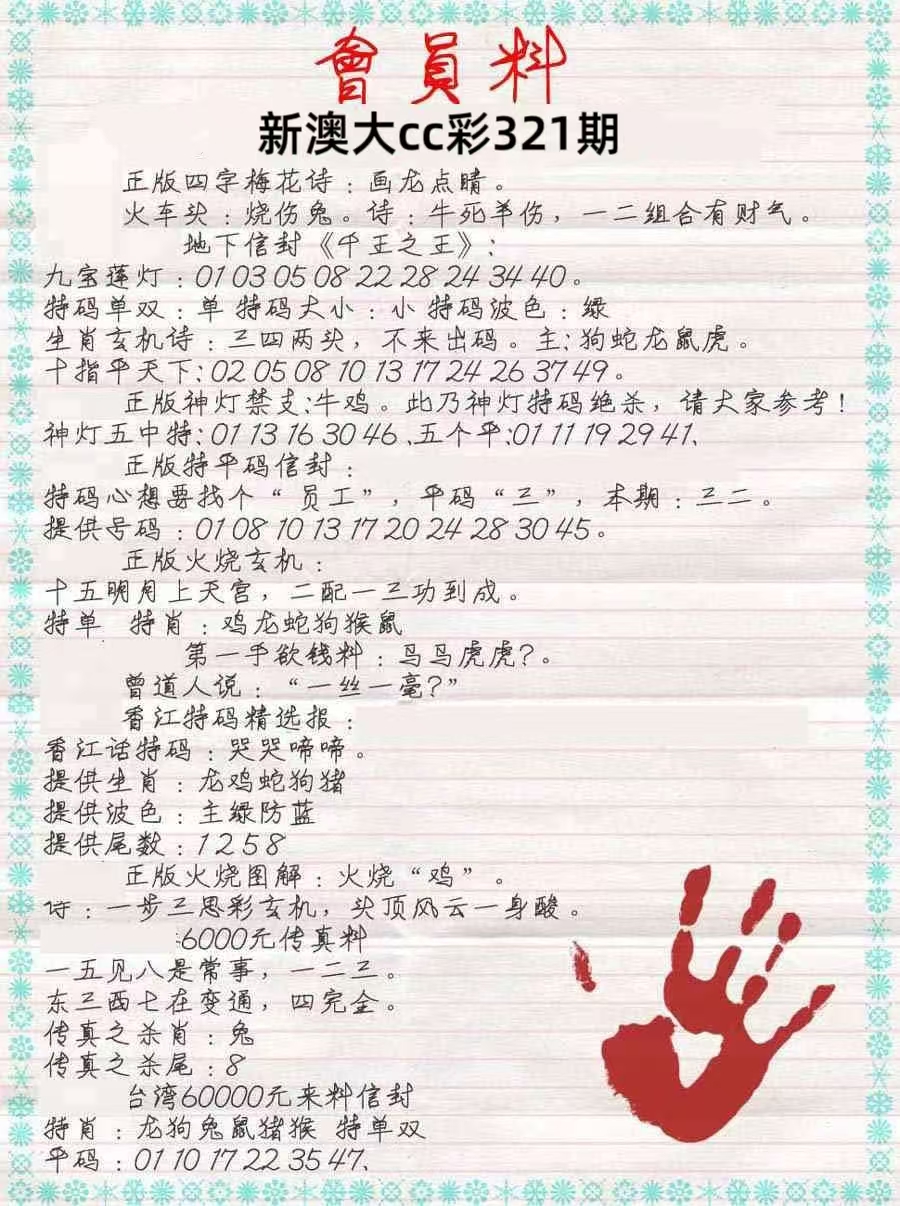 會員料
新澳大cc彩321期
正版四字梅花诗：画龙点睛。
火车头：烧伤兔。诗：牛死羊伤，一二组合有财气。
地下信封《千王之王》：
九宝莲灯：01 03 05 08 22 28 24 34 40。
特码单双：单 特码大小：小 特码波色：绿
生肖玄机诗：三四两头，不来出码。主：狗蛇龙鼠虎。
十指平天下：02 05 08 10 13 17 24 26 37 49。
正版神灯禁支：牛鸡。此乃神灯特码绝杀，请大家参考！
神灯五中特：01 13 16 30 46、五个平：01 11 19 29 41、
正版特平码信封：
特码心想要找个“员工”，平码“三”，本期：三二。
提供号码：01 08 10 13 17 20 24 28 30 45。
正版火烧玄机：
十五明月上天宫，二配一三功到成。
特单 特肖：鸡龙蛇狗猴鼠
第一手欲钱料：马马虎虎？。
曾道人说：“一丝一毫？”
香江特码精选报：
香江话特码：哭哭啼啼。
提供生肖：龙鸡蛇狗猪
提供波色：主绿防蓝
提供尾数：1 2 5 8
正版火烧图解：火烧“鸡”。
诗：一步三思彩玄机，头顶风云一身酸。
6000元传真料
一五见八是常事，一二三。
东三西七在变通，四完全。
传真之杀肖：兔
传真之杀尾：8
台湾60000元来料信封
特肖：龙狗兔鼠猪猴 特单双
平码：01 10 17 22 35 47、